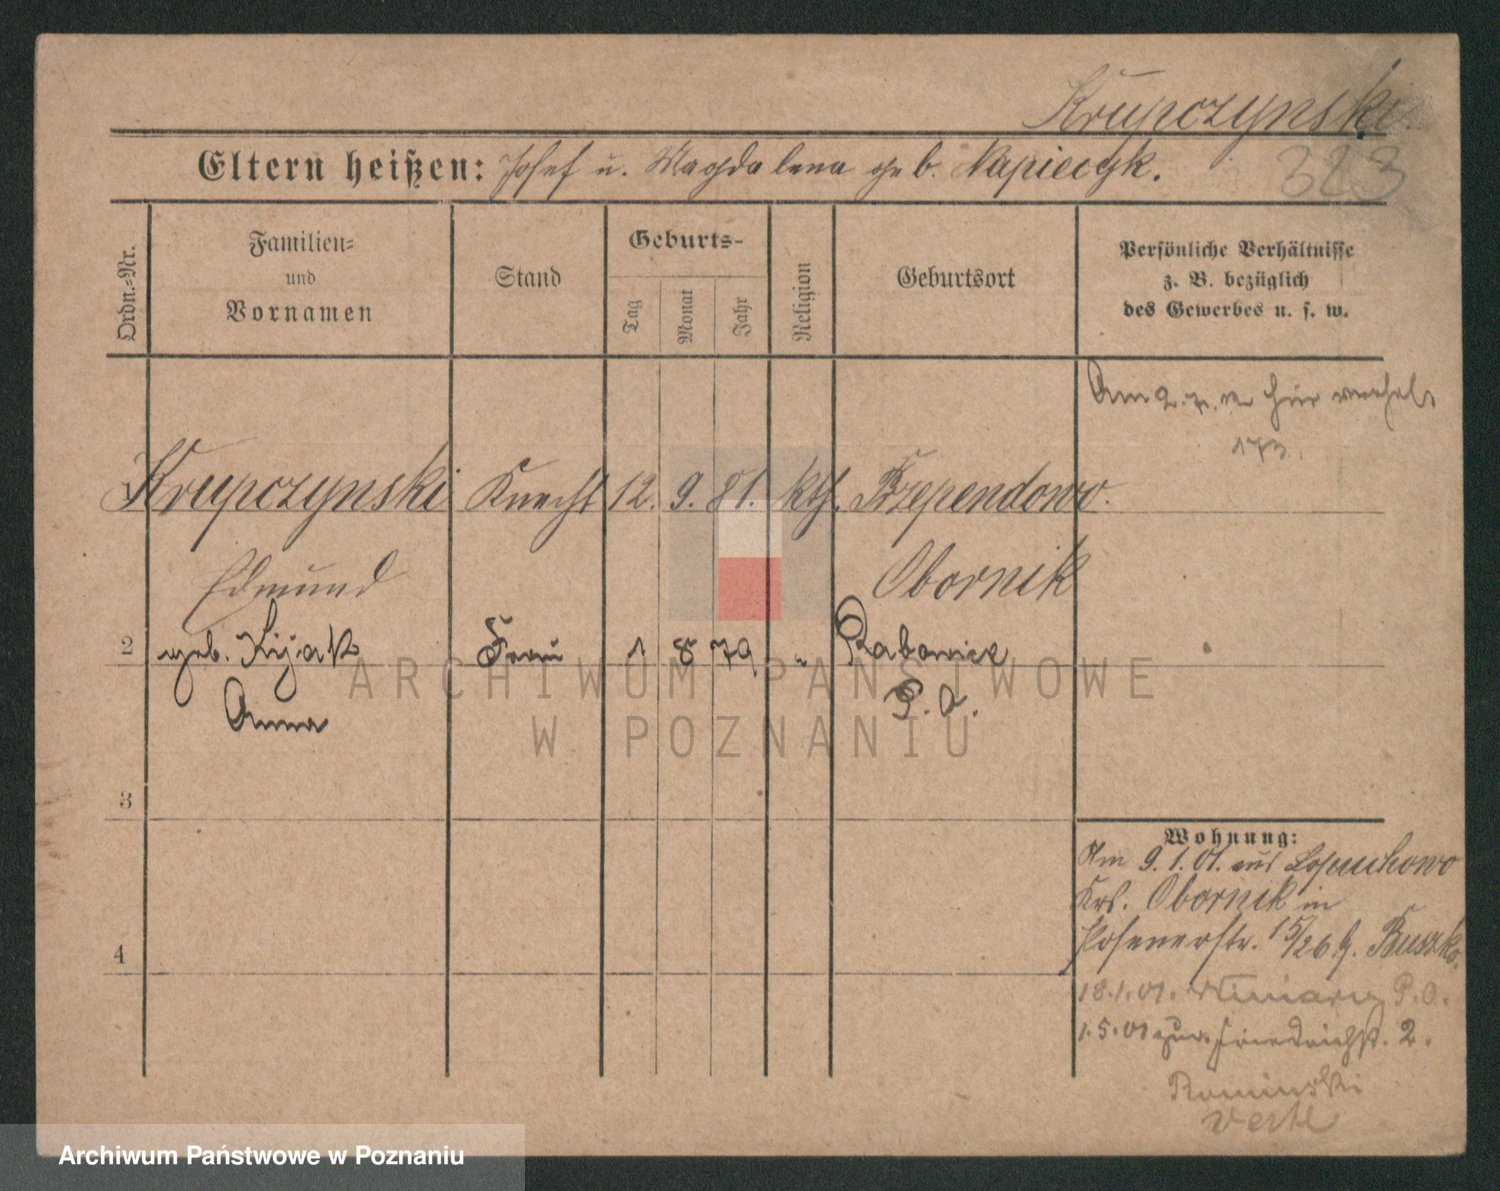 Krupczynski
323
Eltern heißen: Josef u. Magdalena geb. Napieczyk.
Ordn.-Nr.
Familien-
und
Vornamen
Stand
Geburts-
Tag
Monat
Jahr
Religion
Geburtsort
Persönliche Verhältnisse
z. B. bezüglich
des Gewerbes u. s. w.
Am 2. 7. hier
173.
Krupczynski Knecht 12. 9. 81. kth. Przependowo.
Edmund Obornik
2 geb. Kijak Frau 1 8 79 " Rabowice
Anna P. O.
ARCHIWUM PAŃSTWOWE
W POZNANIU
3
Wohnung:
Am 9.1.01. aus Lopuchowo
Krs. Obornik in
Posenerstr. 15/26 b. Buszka.
4
18.1.01. Winiary P.O.
1.5.01 zur Friedrichst. 2.
Kaminski
Archiwum Państwowe w Poznaniu